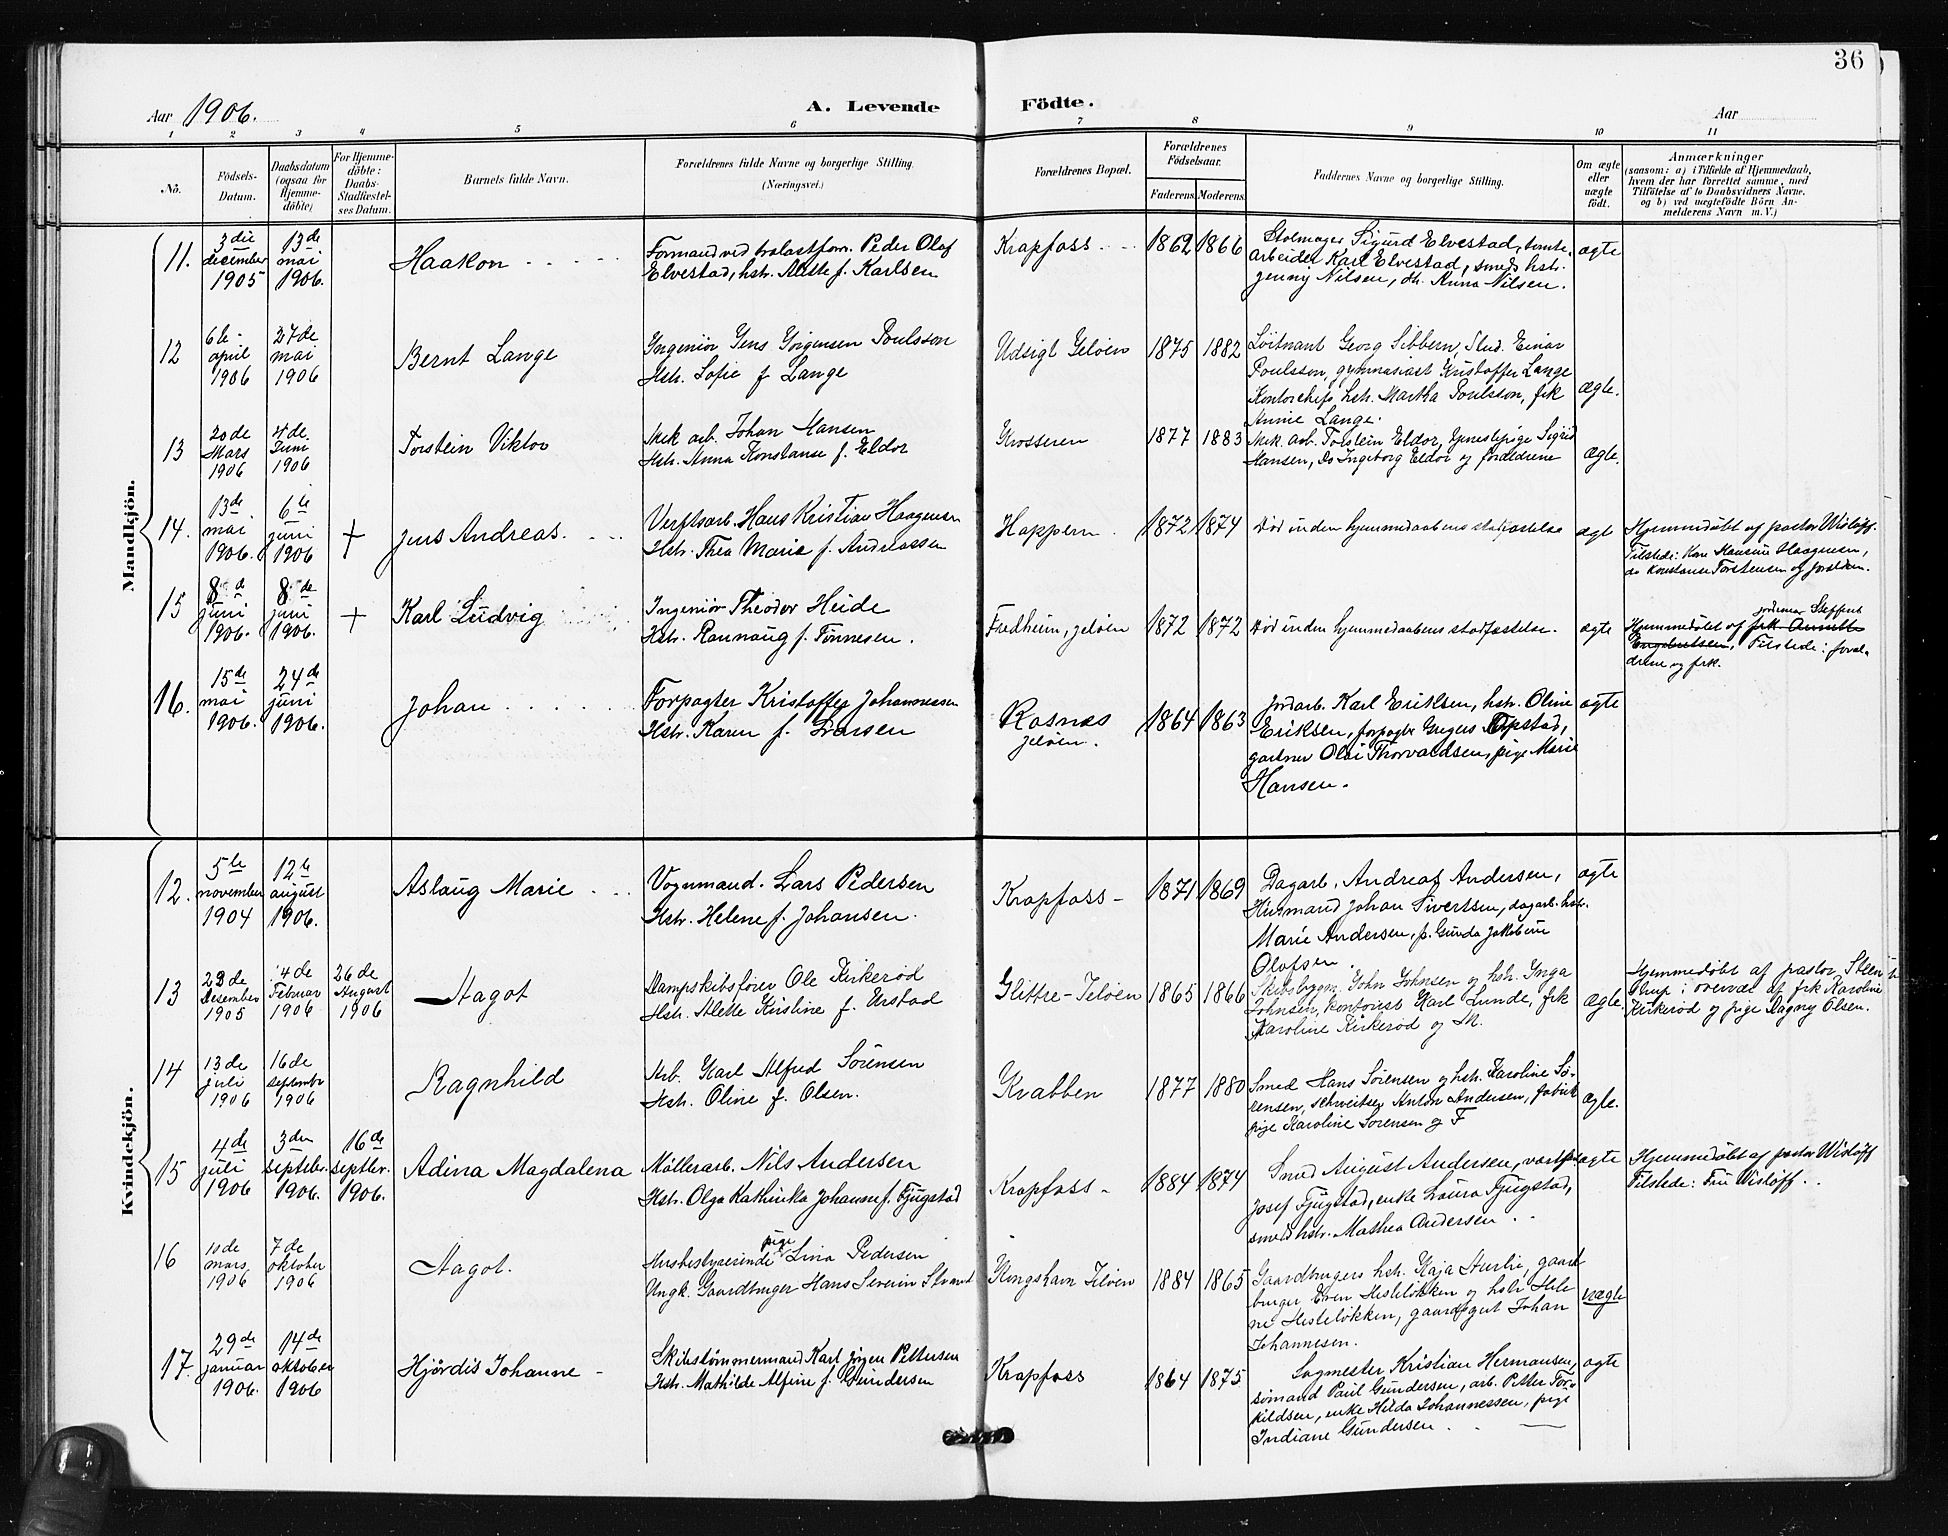 36
Aar 1906.
A. Levende Födte.
Aar
1 2 3 4 5 6 7 8 9 10 11
No.
Födsels-
Datum.
Daabsdatum
(ogsaa for
Hjemme-
döbte)
For Hjemme-
döbte:
Daabs-
Stadfæstel-
ses Datum.
Barnets fulde Navn.
Forældrenes fulde Navne og borgerlige Stilling.
(Næringsvei.)
Forældrenes Bopæl.
Forældrenes
Födselsaar.
Faderens. Moderens.
Faddernes Navne og borgerlige Stilling.
Om ægte
eller
uægte
födt.
Anmærkninger
(saasom: a) i Tilfælde af Hjemmedaab,
hvem der har forrettet samme, med
Tilföielse af to Daabsvidners Navne.
og b) ved uægtefödte Börn An-
melderens Navn m. V.)
Mandkjön.
11.
3die
december
1905
13de
mai
1906.
Haakon
Formand ved Peder Olaf
Elvestad, hstr. f. Karlsen
Krapfoss
1862 1866
Stolmager Sigurd Elvestad, tomte-
arbeider Karl Elvestad, smeds hstr.
Jenny Nilsen, Anna Nilsen.
ægte
12
6te
april
1906
27de
mai
1906
Bernt Lange
Ingeniör Jens Jörgensen Poulsson
Hstr. Sofie f Lange
Udsigt Jeløen
1875 1882
Löitnant Georg Sibbern, Stud. Einar
Poulsson, gymnasiast Kristoffer Lange
Kontorchefs hstr. Martha Poulsson, frk
Annie Lange.
ægte.
13
20de
Mars
1906
4de.
Juni
1906
Torstein Viktor
Mek arb. Johan Hansen
Hstr. Anna Konstanse f. Eldor
Krosseren
1877 1883
Mek. arb. Torstein Eldor, tjenestepige Sigrid
Hansen, Do Ingeborg Eldor og forældrene
ægte.
14.
13de
mai
1906.
6te
juni
1906
+
Jens Andreas.
Verftsarb. Hans Kristian Haagensen
Hstr. Thea Marie f. Andreassen
Happern.
1872 1874
Död inden hjemmedaabens stadfæstelse
ægte
Hjemmedöbt af pastor Wisløff.
Tilstede: Hansine Haagensen,
do Konstanse Torstensen og forældrene.
15
8de
juni
1906.
8de
juni
1906.
+
Karl Ludvig
Ingeniör Theodor Heide
Hstr. Rannaug f. Tönnesen.
Fredheim, Jeløen
1872 1872
Död inden hjemmedaabens stadfæstelse.
ægte
jordemor Steffens
Hjemmedöbt af frk
Engebretsen, Tilstede: foræl-
drene og frk.
16.
15de
mai
1906.
24de
juni
1906.
Johan
Forpagter Kristoffer Johannessen
Hstr. Karen f. Larsen
Rosnes
Jeløen.
1864 1863
Jordarb. Karl Eriksen, hstr. Oline
Eriksen, forpagter Gregers Opstad,
gartner Olai Thorvaldsen, pige Marie
Hansen.
ægte
Kvindekjön.
12.
5te
november
1904
12te
august
1906.
Aslaug Marie
Vognmand. Lars Pedersen
Hstr. Helene f. Johansen.
Krapfoss
1871 1869
Dagarb. Andreas Andersen,
Husmand Johan Sivertsen, dagarb. hstr.
Marie Andersen, p. Gunda Jakobine
Olafsen.
ægte
13
23de
Desember
1905
4de
Februar
1906
26de
August
1906
Aagot
Dampskibsförer Ole Kirkeröd
Hstr. Alette Kirstine f. Urstad
Glittre-Jeløen
1865 1866
Skibsbygm. John Johnsen og hstr. Inga
Johnsen, kontorist Karl Lunde, frk
Karoline Kirkeröd og M.
ægte
Hjemmedöbt af pastor Steen-
strup i overvær af frk Karoline
Kirkeröd og pige Dagny Olsen.
14
13de
juli
1906
16de
september
1906
Ragnhild
Arb. Karl Alfred Sörensen
Hstr. Oline f. Olsen.
Kvabben
1877 1880
Smed Hans Sörensen og hstr. Karoline Sö-
rensen, schweitser Anton Andersen, fabrik
pige Karoline Sörensen og F
ægte.
15
4de
juli
1906
3die
septebr.
1906.
16de
septbr.
1906.
Adina Magdalena
Möllerarb. Nils Andersen
Hstr. Olga Kathinka Johanne f. Fjugstad
Krapfoss
1884 1874
Smed August Andersen,
Josef Fjugstad, enke Laura Fjugstad,
smeds hstr. Mathea Andersen
ægte
Hjemmedöbt af pastor Wisløff
Tilstede: Fru Wisløff.
16
10de
mars
1906
7de
oktober
1906
Aagot.
Husbestyrerinde pige Lina Pedersen
Ungk. Gaardbruger Hans Severin
Kongshavn Jeløen
1884 1865
Gaardbrugers hstr. Kaja Aurlie, gaard-
bruger Even Hesteløkken og hstr Hele-
ne Hesteløkken, gaardsgut Johan
Johannesen.
uægte
17.
29de
januar
1906.
14de
oktober
1906
Hjördis Johanne
Skibstömmermand Karl Jörgen Pettersen
Hstr. Mathilde Alfine f. Gundersen
Krapfoss
1864 1875
Sagmester Kristian Hermansen,
sömand Paul Gundersen, arb. Petter Tor-
kildsen, enke Hilda Johannessen, pige
Indiane Gundersen.
ægte